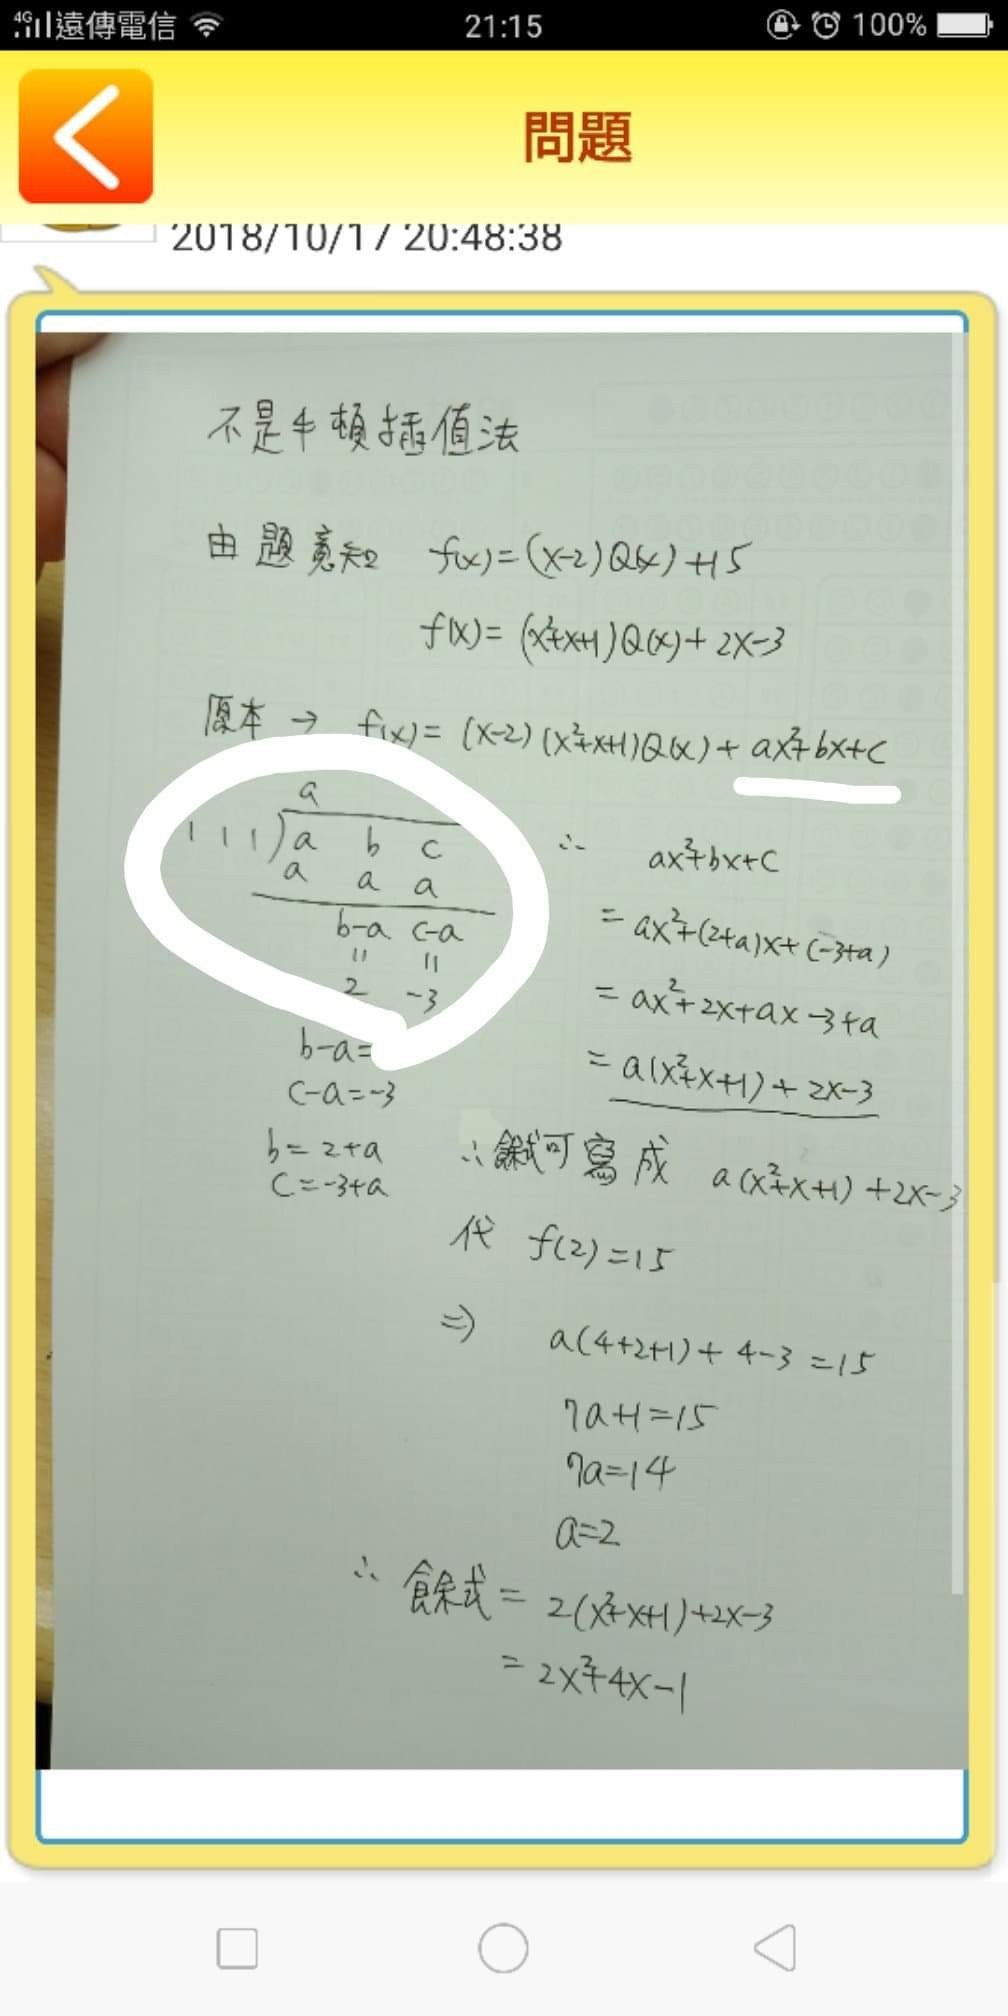 4G 遠傳電信 21:15 100%
問題
2018/10/17 20:48:38
不是牛頓插值法
由題意知 f(x)=(x-2)Q(x)+15
f(x)=(x²+x+1)Q(x)+2x-3
原本→ f(x)=(x-2)(x²+x+1)Q(x)+ax²+bx+c
a
1 1 1)a b c
a a a
b-a c-a
" "
2 -3
b-a=
c-a=-3
b=2+a
c=-3+a
∴ ax²+bx+c
=ax²+(2+a)x+(-3+a)
=ax²+2x+ax-3+a
=a(x²+x+1)+2x-3
∴餘式可寫成 a(x²+x+1)+2x-3
代 f(2)=15
⇒ a(4+2+1)+4-3=15
7a+1=15
7a=14
a=2
∴ 餘式=2(x²+x+1)+2x-3
=2x²+4x-1